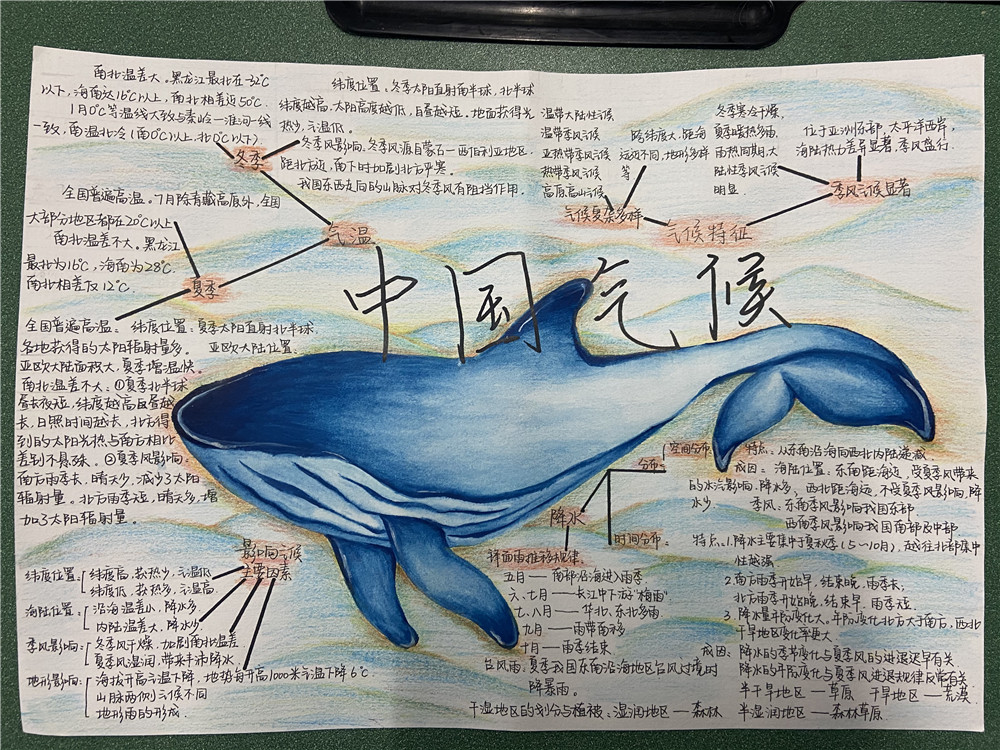 南北温差大。黑龙江最北在-32℃
以下,海南达16℃以上,南北相差近50℃.
1月0℃等温线大致与秦岭一淮河一线
一致,南温北冷(南0℃以上,北0℃以下)
冬季
纬度位置、冬季太阳直射南半球,北半球
纬度越高,太阳高度越低,白昼越短,地面获得光
热少,气温低。
冬季风影响、冬季风源自蒙古一西伯利亚地区,
距北方近,南下时加剧北方严寒。
我国东西走向的山脉对冬季风有阻挡作用。
全国普遍高温。7月除青藏高原外,全国
大部分地区都在20℃以上
南北温差不大。黑龙江
最北为16℃,海南为28℃.
南北相差仅12℃.
夏季
气温
温带大陆性气候
温带季风气候
亚热带季风气候
热带季风气候
高原高山气候
跨纬度大,距海
远近不同,地形多样
等
气候复杂多样
冬季寒冷干燥,
夏季暖热多雨,
雨热同期,大
陆性季风气候
明显.
位于亚洲东部,太平洋西岸,
海陆热力差异显著,季风盛行.
季风气候显著
气候特征
中国气候
全国普遍高温:纬度位置:夏季太阳直射北半球.
各地获得的太阳辐射量多。 亚欧大陆位置:
亚欧大陆面积大,夏季增温快.
南北温差不大:①夏季北半球
昼长夜短,纬度越高白昼越
长,日照时间越长,北方得
到的太阳光热与南方相比
差别不悬殊。②夏季风影响:
南方雨季长,晴天少,减少了太阳
辐射量。北方雨季短,晴天多,增
加了太阳辐射量。
影响气候
主要因素
纬度位置:纬度高、获热少,气温低
纬度低、获热多,气温高.
海陆位置:沿海温差小,降水多
内陆温差大,降水少
季风影响:冬季风干燥,加剧南北温差
夏季风湿润,带来丰沛降水.
地形影响:海拔升高气温下降,地势每升高1000米气温下降6℃
山脉两侧气候不同
地形雨的形成.
降水
分布
空间分布
特点:从东南沿海向西北内陆递减
成因:海陆位置:东南距海近、受夏季风带来
的水汽影响,降水多;西北距海远,不受夏季风影响,降
水少
季风:东南季风影响我国东部.
西南季风影响我国南部及中部
时间分布:
特点:1.降水主要集中于夏秋季(5~10月),越往北部集中
性越强
2.南方雨季开始早,结束晚,雨季长;
北方雨季开始晚,结束早,雨季短.
3.降水量年际变化大,年际变化北方大于南方,西北
干旱地区变化率更大.
成因:降水的季节变化与夏季风的进退迟早有关.
降水的年际变化与夏季风进退规律反常有关
锋面雨推移规律:
五月一南部沿海进入雨季
六、七月一长江中下游"梅雨"
七、八月一华北、东北多雨
九月一雨带南移
十月一雨季结束
台风雨:夏季我国东南沿海地区台风过境时
降暴雨。
干湿地区的划分与植被:湿润地区一森林
半湿润地区一森林草原
半干旱地区一草原 干旱地区一荒漠